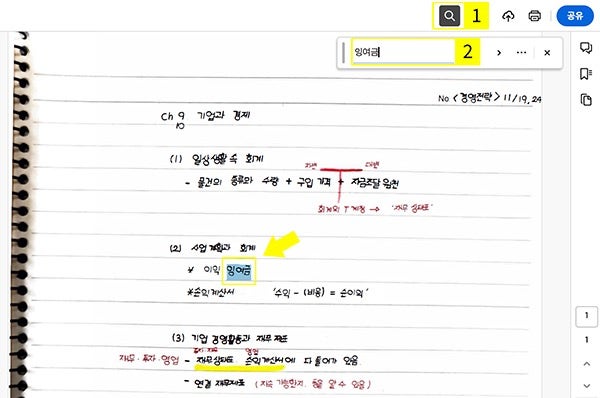 1
공유
잉여금
2
No <경영전략> 11/19, 24
Ch 9 기업과 경제
10
(1) 일상생활 속 회계
차변 대변
- 물건의 종류와 수량 + 구입 가격 + 자금조달 원천
회계의 T계정 → '재무상태표'
(2) 사업계획과 회계
* 이익 잉여금
*손익계산서 '수익 - (비용) = 순이익'
(3) 기업 경영활동과 재무제표
영업
재무·투자·영업 - 재무상태표 손익계산서에 다 들어가 있음
- 연결 재무제표 (지속 가능한지, 등을 알 수 있음)
1
1